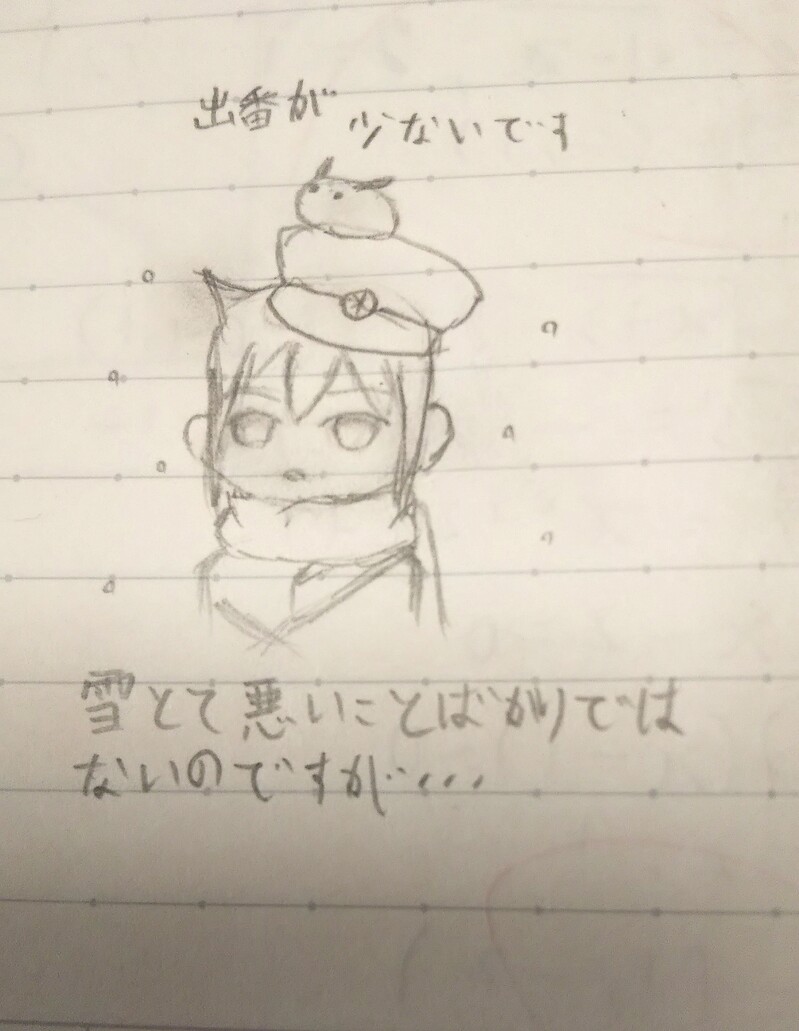 出番が 少ないです
雪とて悪いことばかりでは
ないのですが・・・